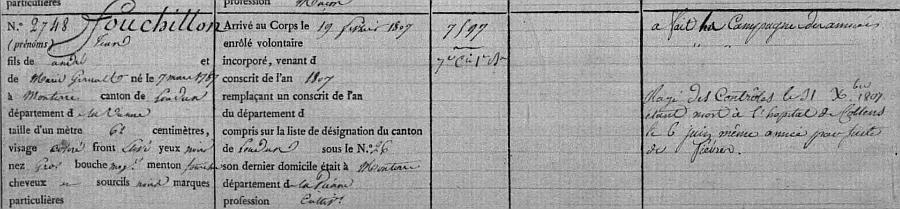 particulières
profession Maçon
N.° 2748 Fouchillon
(prénoms) Jean
fils de andré et
de Marie né le 7 mars 1787
à Monterre canton de Loudun
département d la Vienne
taille d'un mètre 61 centimètres,
visage front yeux noirs
nez Gros bouche moy.e menton fourchu
cheveux n sourcils noirs marques
particulières
Arrivé au Corps le 19 février 1807
enrôlé volontaire
incorporé, venant d
conscrit de l'an 1807
remplaçant un conscrit de l'an
du département d
compris sur la liste de désignation du canton
de Loudun sous le N.° 26
son dernier domicile était à Monterre
département d la Vienne
profession Cultiv.r
7597
7.e C.ie 1.r B.on
a fait la Campagne
Rayé des Contrôles le 31 X.bre 1807
étant mort à l'hopital de
le 6 juin même année par suite
de fièvre.